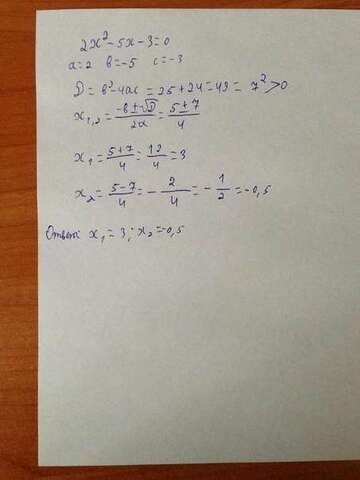 2x²-5x-3=0
a=2 b=-5 c=-3
D=b²-4ac=25+24=49=7²>0
x₁,₂=(-b±√D)/2a=(5±7)/4
x₁=(5+7)/4=12/4=3
x₂=(5-7)/4=-2/4=-1/2=-0,5
Ответ: x₁=3; x₂=-0,5